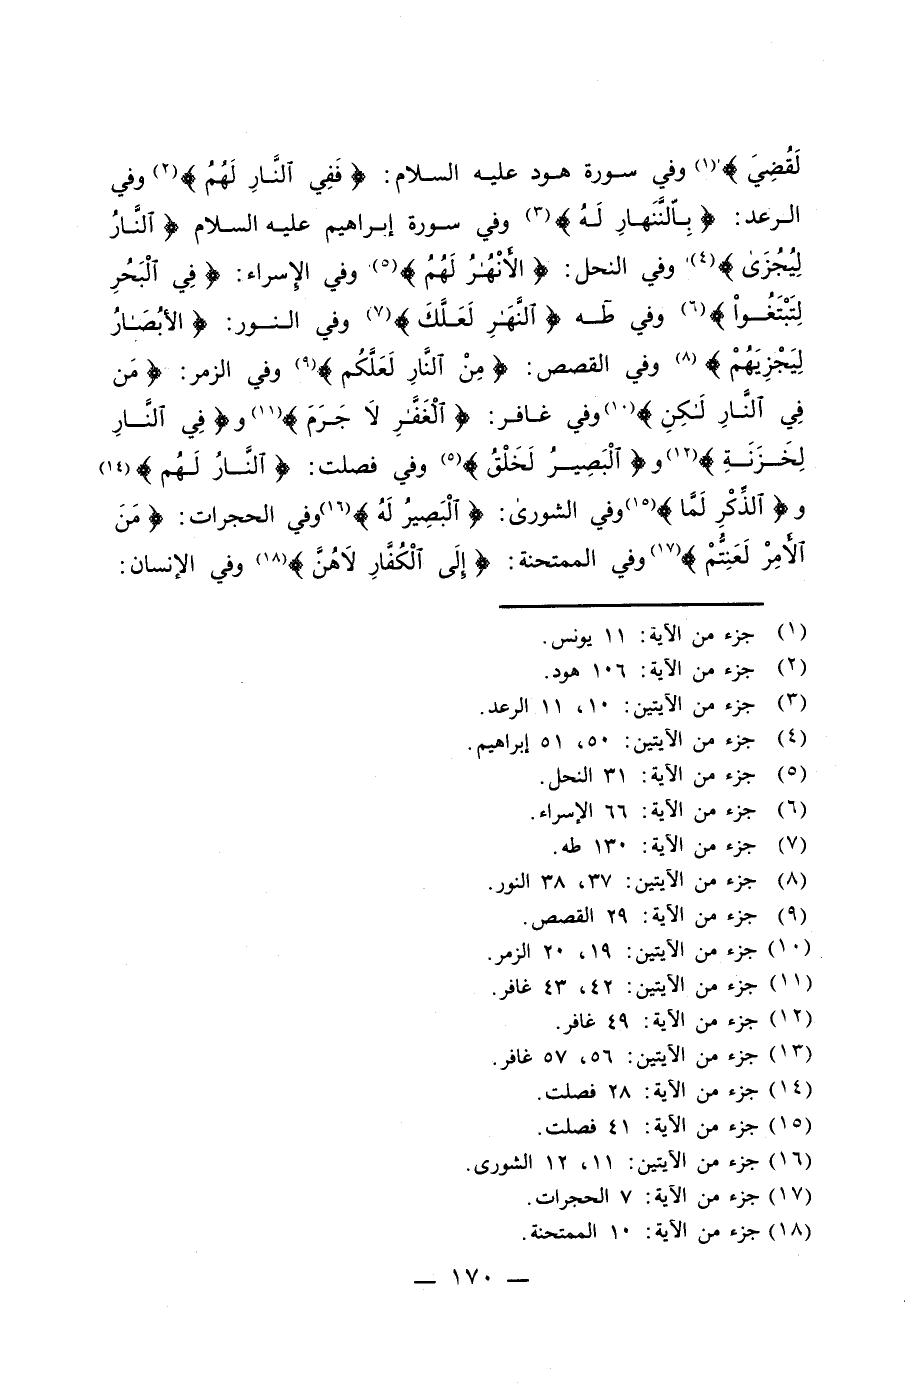 لَقُضِيَ ﴾(١) وفي سورة هود عليه السلام: ﴿ فَفِي ٱلنَّارِ لَهُمُ ﴾(٢) وفي
الرعد: ﴿ بِٱلنَّهارِ لَهُ ﴾(٣) وفي سورة إبراهيم عليه السلام ﴿ ٱلنَّارُ
لِيُجْزَىٰ ﴾(٤) وفي النحل: ﴿ الأَنْهَٰرُ لَهُمْ ﴾(٥) وفي الإسراء: ﴿ فِي ٱلْبَحْرِ
لِتَبْتَغُواْ ﴾(٦) وفي طَه ﴿ ٱلنَّهَٰرِ لَعَلَّكَ ﴾(٧) وفي النور: ﴿ الأبْصَٰرُ
لِيَجْزِيَهُمْ ﴾ (٨) وفي القصص: ﴿ مِنْ ٱلنَّارِ لَعَلَّكُم ﴾(٩) وفي الزمر: ﴿ مَن
فِي ٱلنَّارِ لَٰكِنِ ﴾(١٠) وفي غافر: ﴿ ٱلْغَفَّٰرِ لَا جَرَمَ ﴾(١١) و ﴿ فِي ٱلنَّارِ
لِخَزَنَةِ ﴾(١٢) و ﴿ ٱلْبَصِيرُ لَخَلْقُ ﴾(٥) وفي فصلت: ﴿ ٱلنَّارُ لَهُم ﴾(١٤)
و ﴿ ٱلذِّكْرِ لَمَّا ﴾(١٥) وفي الشورىٰ: ﴿ ٱلْبَصِيرُ لَهُ ﴾(١٦) وفي الحجرات: ﴿ مَنَ
ٱلأَمِرْ لَعَنِتُّمْ ﴾(١٧) وفي الممتحنة: ﴿ إِلَى ٱلْكُفَّارِ لَاهُنَّ ﴾(١٨) وفي الإنسان:
(١) جزء من الآية: ١١ يونس.
(٢) جزء من الآية: ١٠٦ هود.
(٣) جزء من الآيتين: ١٠، ١١ الرعد.
(٤) جزء من الآيتين: ٥٠، ٥١ إبراهيم.
(٥) جزء من الآية: ٣١ النحل.
(٦) جزء من الآية: ٦٦ الإسراء.
(٧) جزء من الآية: ١٣٠ طه.
(٨) جزء من الآيتين: ٣٧، ٣٨ النور.
(٩) جزء من الآية: ٢٩ القصص.
(١٠) جزء من الآيتين: ١٩، ٢٠ الزمر.
(١١) جزء من الآيتين: ٤٢، ٤٣ غافر.
(١٢) جزء من الآية: ٤٩ غافر.
(١٣) جزء من الآيتين: ٥٦، ٥٧ غافر.
(١٤) جزء من الآية: ٢٨ فصلت.
(١٥) جزء من الآية: ٤١ فصلت.
(١٦) جزء من الآيتين: ١١، ١٢ الشورى.
(١٧) جزء من الآية: ٧ الحجرات.
(١٨) جزء من الآية: ١٠ الممتحنة.
— ١٧٠ —